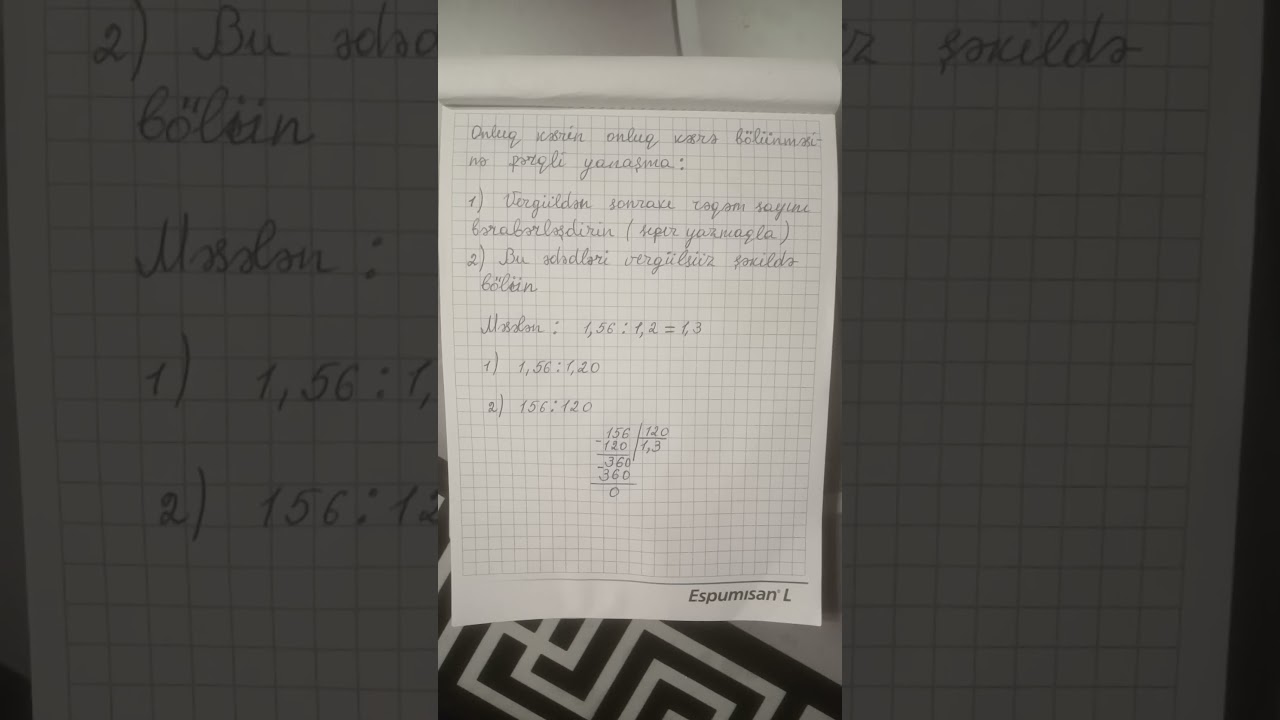 Onluq kəsrin onluq kəsrə bölünməsi-
nə fərqli yanaşma:
1) Vergüldən sonrakı rəqəm sayını
bərabərləşdirin (sıfır yazmaqla)
2) Bu ədədləri vergülsüz şəkildə
bölün
Məsələn: 1,56 : 1,2 = 1,3
1) 1,56 : 1,20
2) 156 : 120
156 120
- 120 1,3
- 360
360
0
Espumisan® L